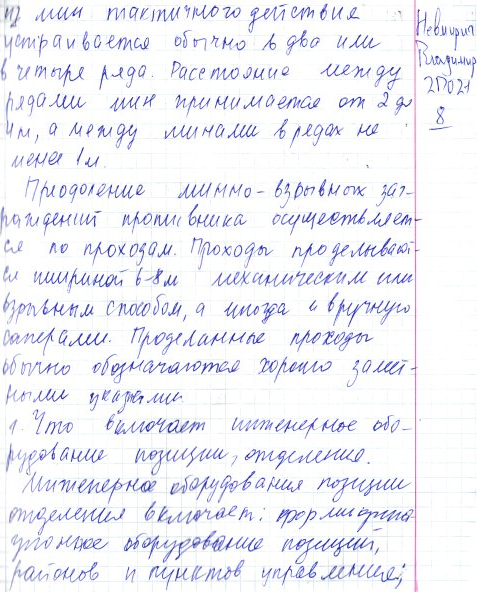 мин тактичного действия
устраивается обычно в два или
в четыре ряда. Расстояние между
рядами мин принимается от 2 до
4 м, а между минами в рядах не
менее 1 м.
Преодоление минно-взрывных заг-
раждений противника осуществляет-
ся по проходам. Проходы проделывают
ся шириной 6-8 м механическим или
взрывным способом, а иногда и вручную
саперами. Проделанные проходы
обычно обозначаются хорошо замет-
ными указами
1. Что включает инженерное обо-
рудование позиции, отделения.
Инженерное оборудования позиции
отделения включает:
оборудование позиций,
районов и пунктов управление;
Владимир
2П021
8